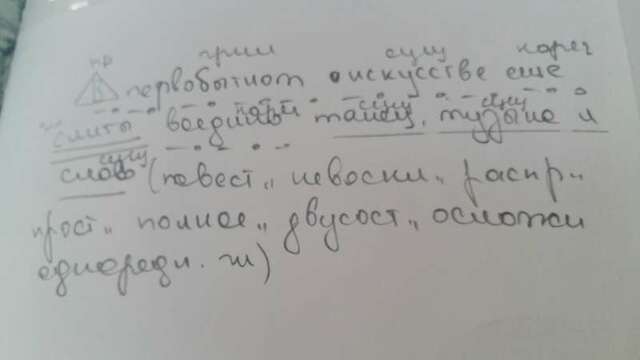 пр прил сущ нареч
В первобытном искусстве еще
слиты воедино сущ сущ
танец, музыка и
сущ
слово (повест., невоскл., распр.,
прост., полное, двусост., осложн
однородн.